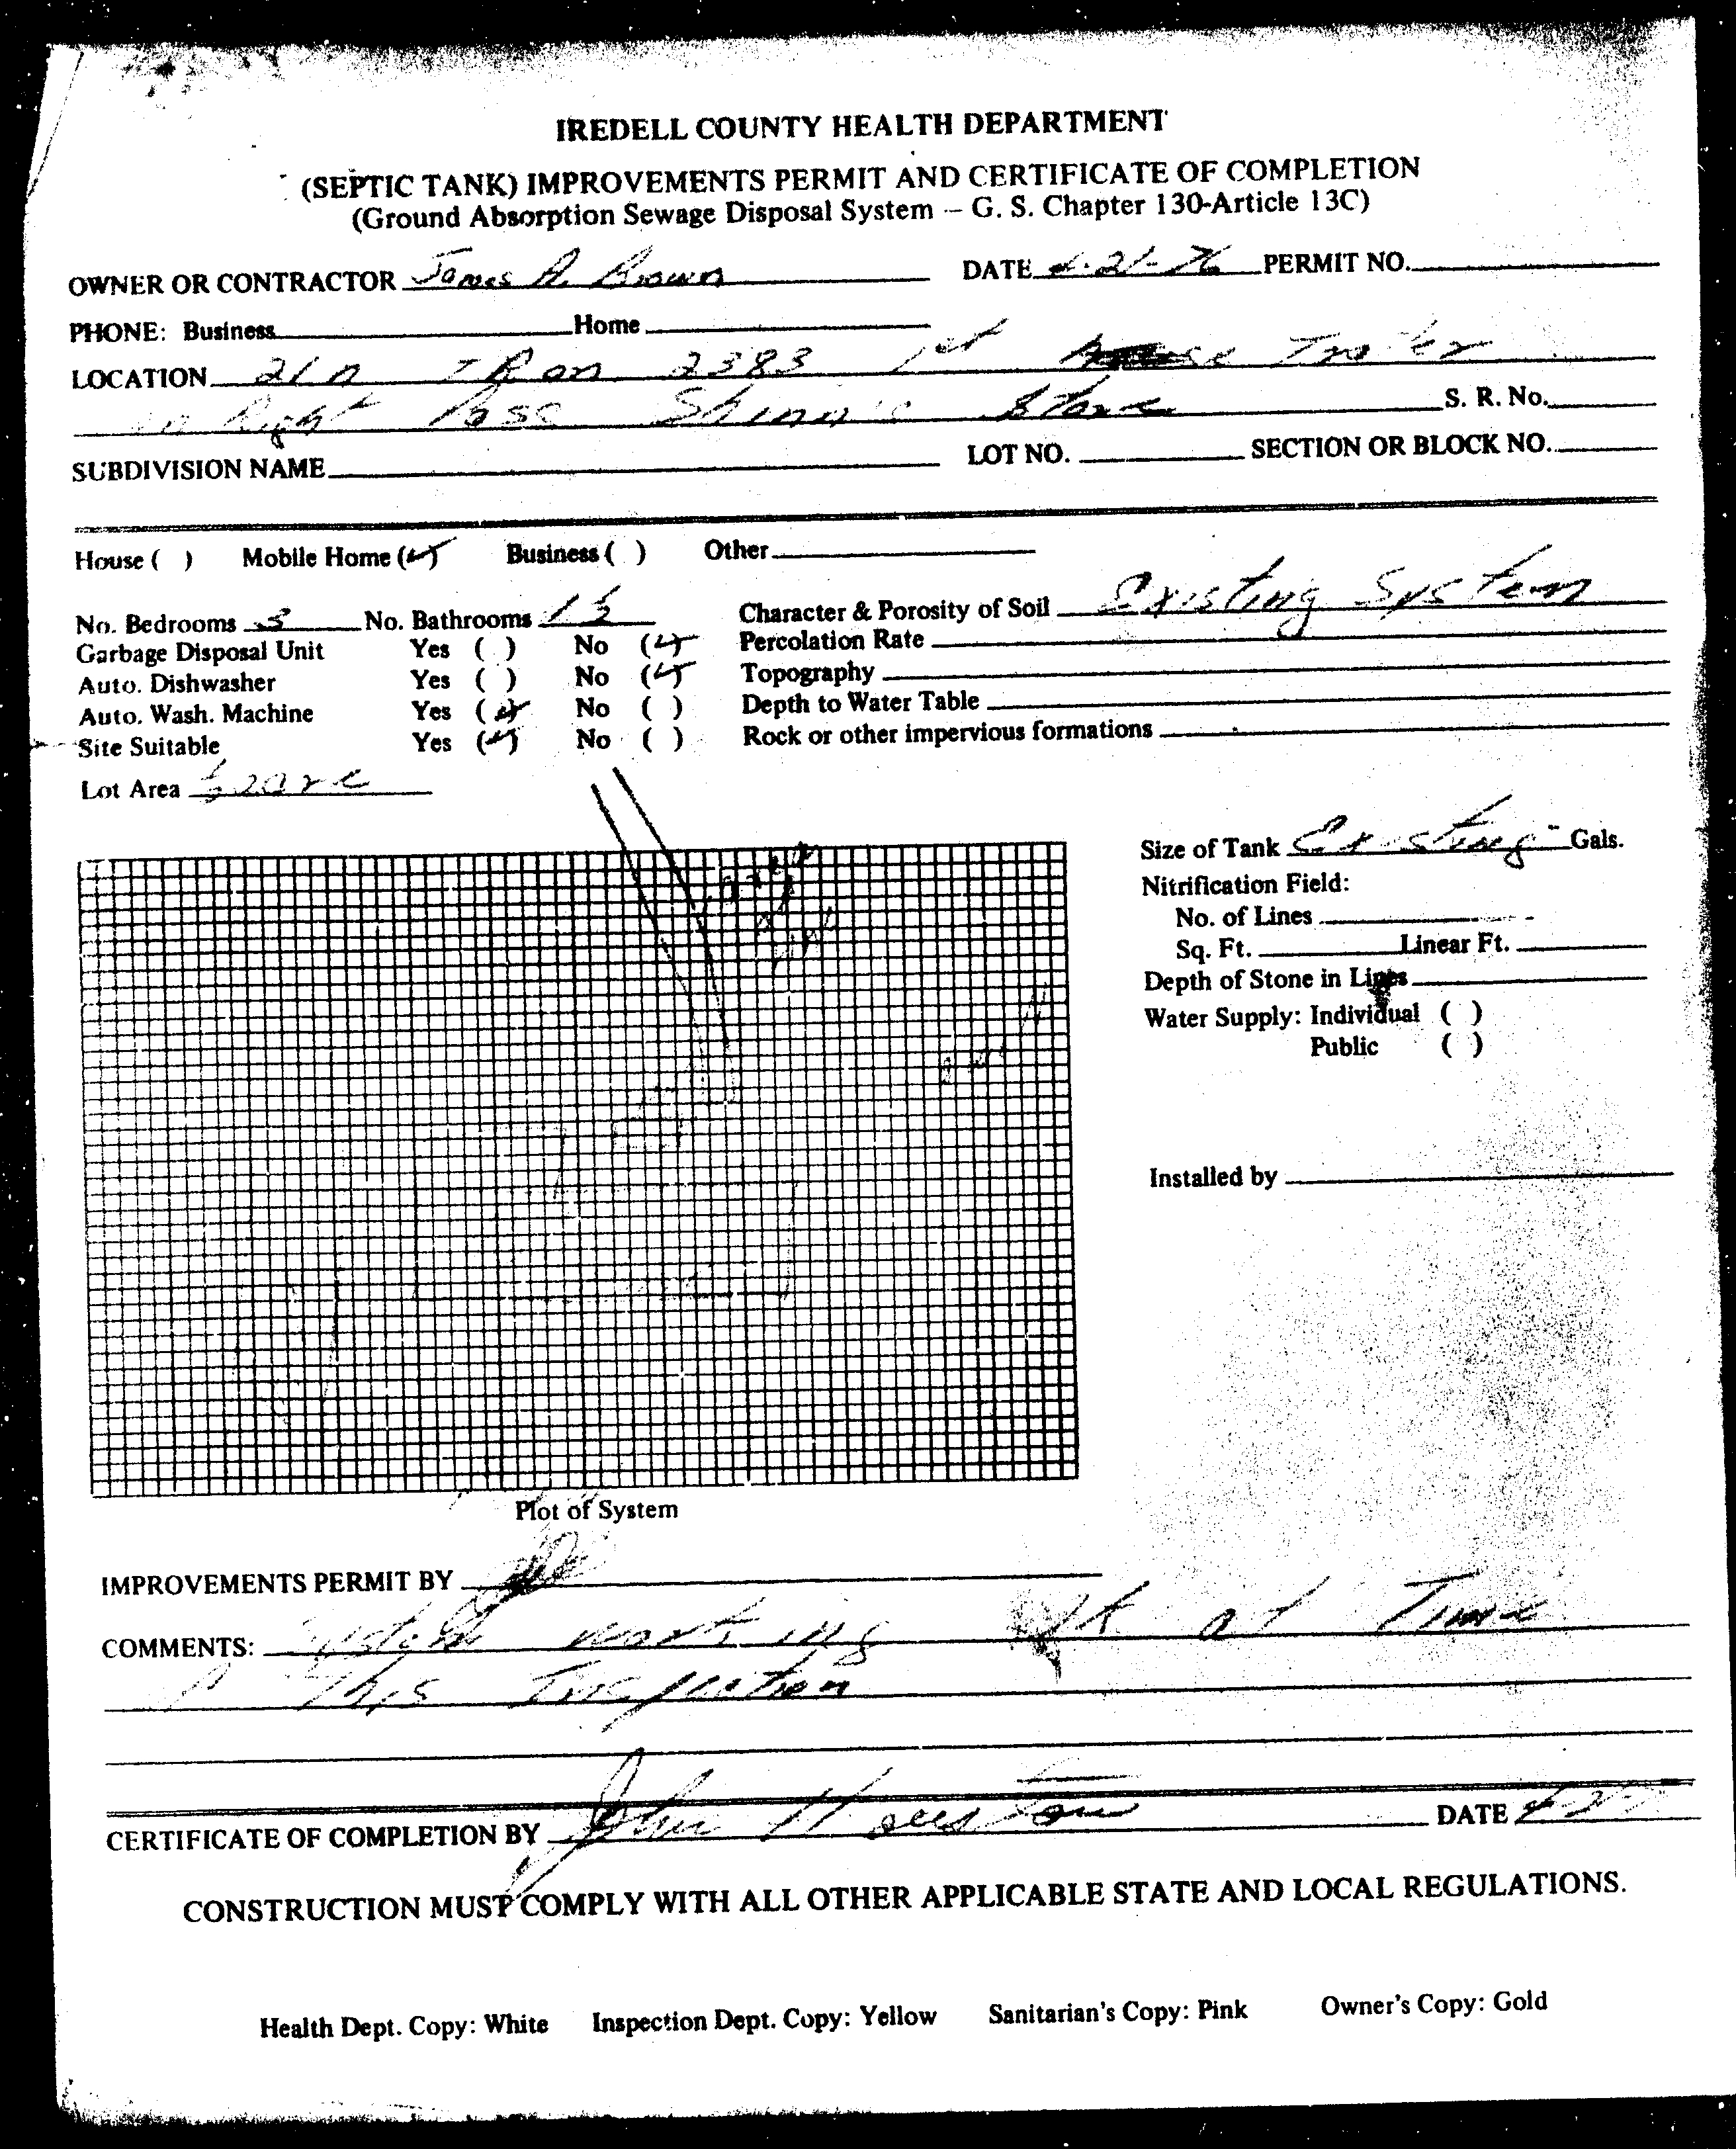 IREDELL COUNTY HEALTH DEPARTMENT
(SEPTIC TANK) IMPROVEMENTS PERMIT AND CERTIFICATE OF COMPLETION
(Ground Absorption Sewage Disposal System – G. S. Chapter 130-Article 13C)
OWNER OR CONTRACTOR James A. Brown DATE 4-21-76 PERMIT NO.
PHONE: Business Home
LOCATION 21 n TR on 2383 1st Trailer
on Right Pass Shinn's Store S. R. No.
SUBDIVISION NAME LOT NO. SECTION OR BLOCK NO.
House ( ) Mobile Home (✓) Business ( ) Other
No. Bedrooms 3 No. Bathrooms 1½ Character & Porosity of Soil Existing System
Garbage Disposal Unit Yes ( ) No (✓) Percolation Rate
Auto. Dishwasher Yes ( ) No (✓) Topography
Auto. Wash. Machine Yes (✓) No ( ) Depth to Water Table
Site Suitable Yes (✓) No ( ) Rock or other impervious formations
Lot Area
Size of Tank Existing Gals.
Nitrification Field:
No. of Lines
Sq. Ft. Linear Ft.
Depth of Stone in Lines
Water Supply: Individual ( )
Public ( )
Installed by
Plot of System
IMPROVEMENTS PERMIT BY
COMMENTS: System working ok at Time
of This Inspection
CERTIFICATE OF COMPLETION BY John Houston DATE
CONSTRUCTION MUST COMPLY WITH ALL OTHER APPLICABLE STATE AND LOCAL REGULATIONS.
Health Dept. Copy: White Inspection Dept. Copy: Yellow Sanitarian's Copy: Pink Owner's Copy: Gold